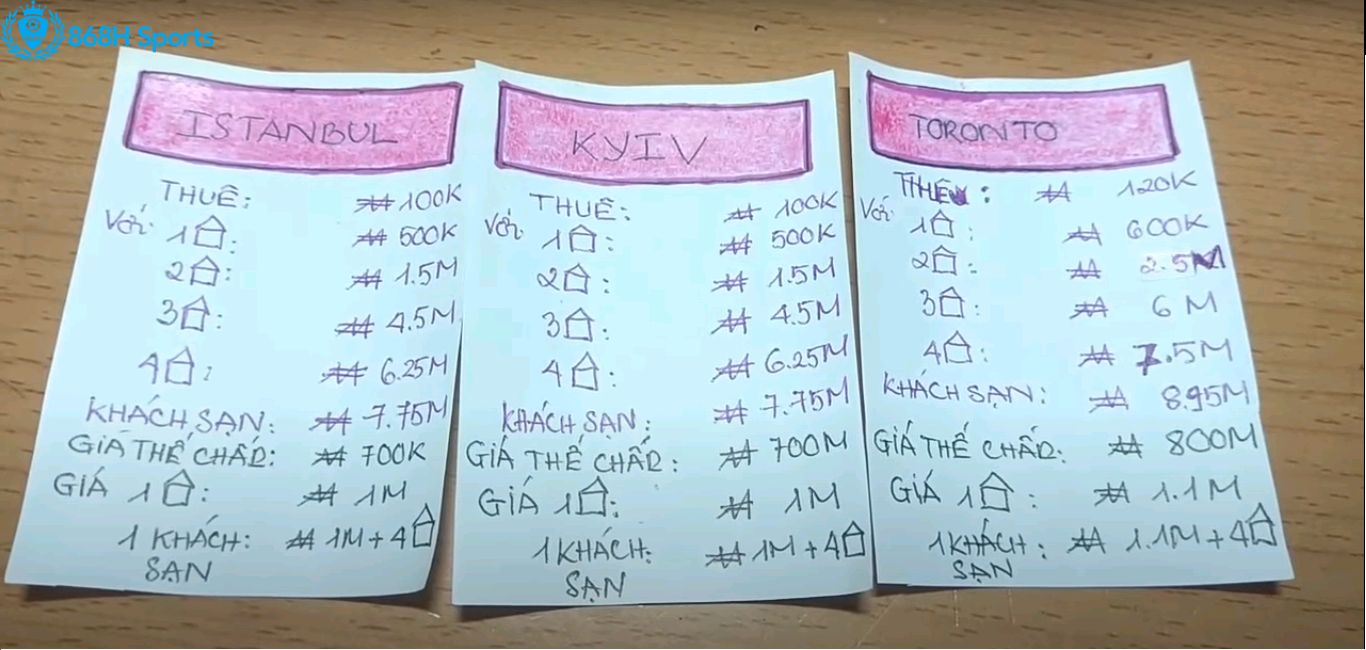 868H Sports
ISTANBUL
THUÊ: ₩ 100K
Với 1⌂: ₩ 500K
2⌂: ₩ 1.5M
3⌂: ₩ 4.5M
4⌂: ₩ 6.25M
KHÁCH SẠN: ₩ 7.75M
GIÁ THẾ CHẤP: ₩ 700K
GIÁ 1⌂: ₩ 1M
1 KHÁCH: ₩ 1M + 4⌂
SẠN
KYIV
THUÊ: ₩ 100K
Với 1⌂: ₩ 500K
2⌂: ₩ 1.5M
3⌂: ₩ 4.5M
4⌂: ₩ 6.25M
KHÁCH SẠN: ₩ 7.75M
GIÁ THẾ CHẤP: ₩ 700M
GIÁ 1⌂: ₩ 1M
1 KHÁCH: ₩ 1M + 4⌂
SẠN
TORONTO
: ₩ 120K
Với 1⌂: ₩ 600K
2⌂: ₩ 2.5M
3⌂: ₩ 6M
4⌂: ₩ 7.5M
KHÁCH SẠN: ₩ 8.95M
GIÁ THẾ CHẤP: ₩ 800M
GIÁ 1⌂: ₩ 1.1M
1 KHÁCH: ₩ 1.1M + 4⌂
SẠN